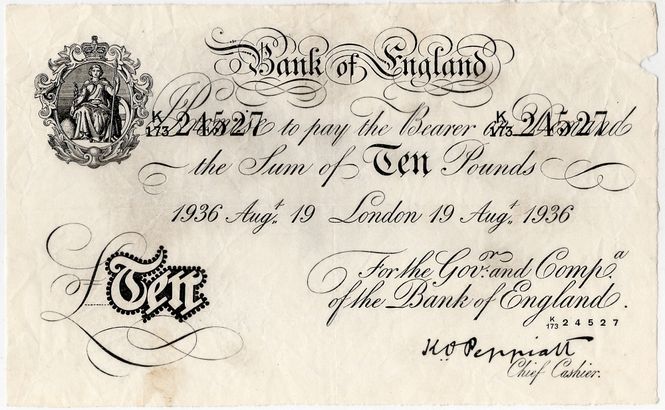 Bank of England
K/173 24527 K/173 24527
I Promise to pay the Bearer on Demand
the Sum of Ten Pounds
1936 Augt. 19 London 19 Augt. 1936
£Ten
For the Govr. and Compa.
of the Bank of England.
K/173 24527
K O Peppiatt
Chief Cashier.